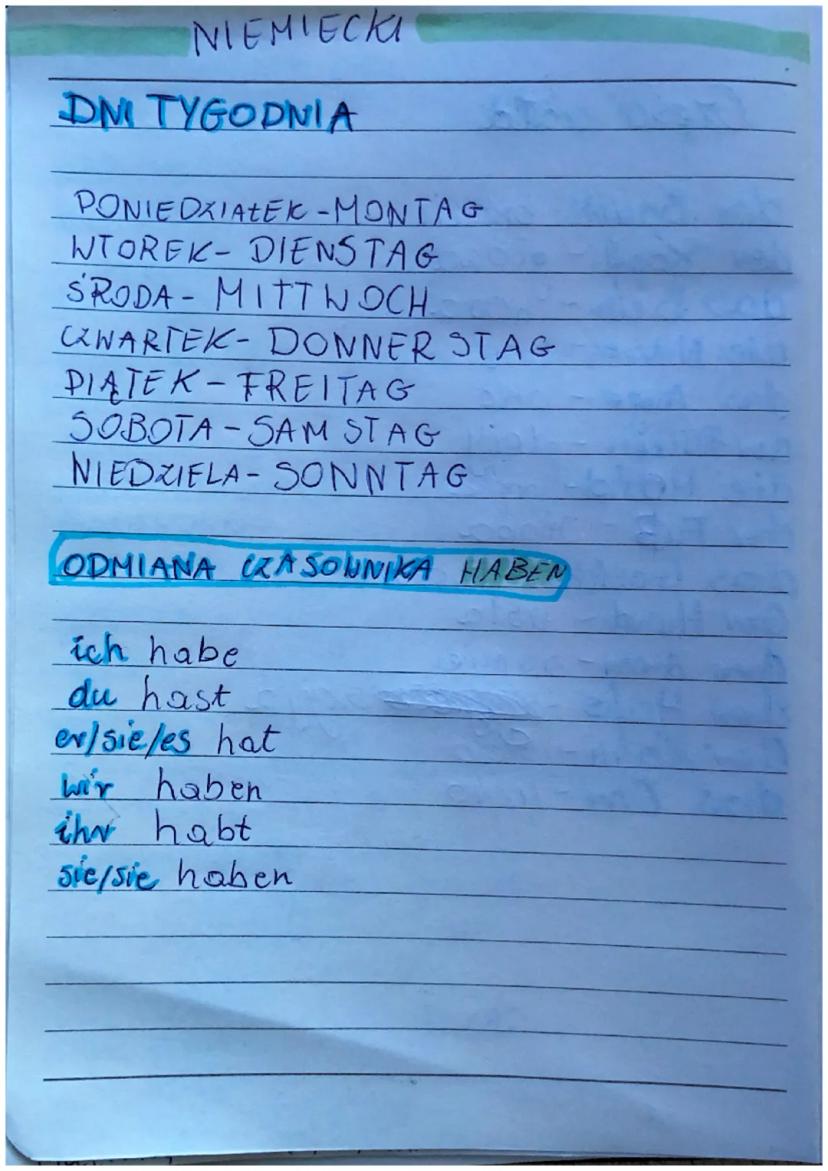 NIEMIECKI
DNI TYGODNIA
PONIEDZIAŁEK - MONTAG
WTOREK - DIENSTAG
ŚRODA - MITTWOCH
CZWARTEK - DONNERSTAG
PIĄTEK - FREITAG
SOBOTA - SAMSTAG
NIEDZIELA - SONNTAG
ODMIANA CZASOWNIKA HABEN
ich habe
du hast
er/sie/es hat
wir haben
ihr habt
sie/sie haben